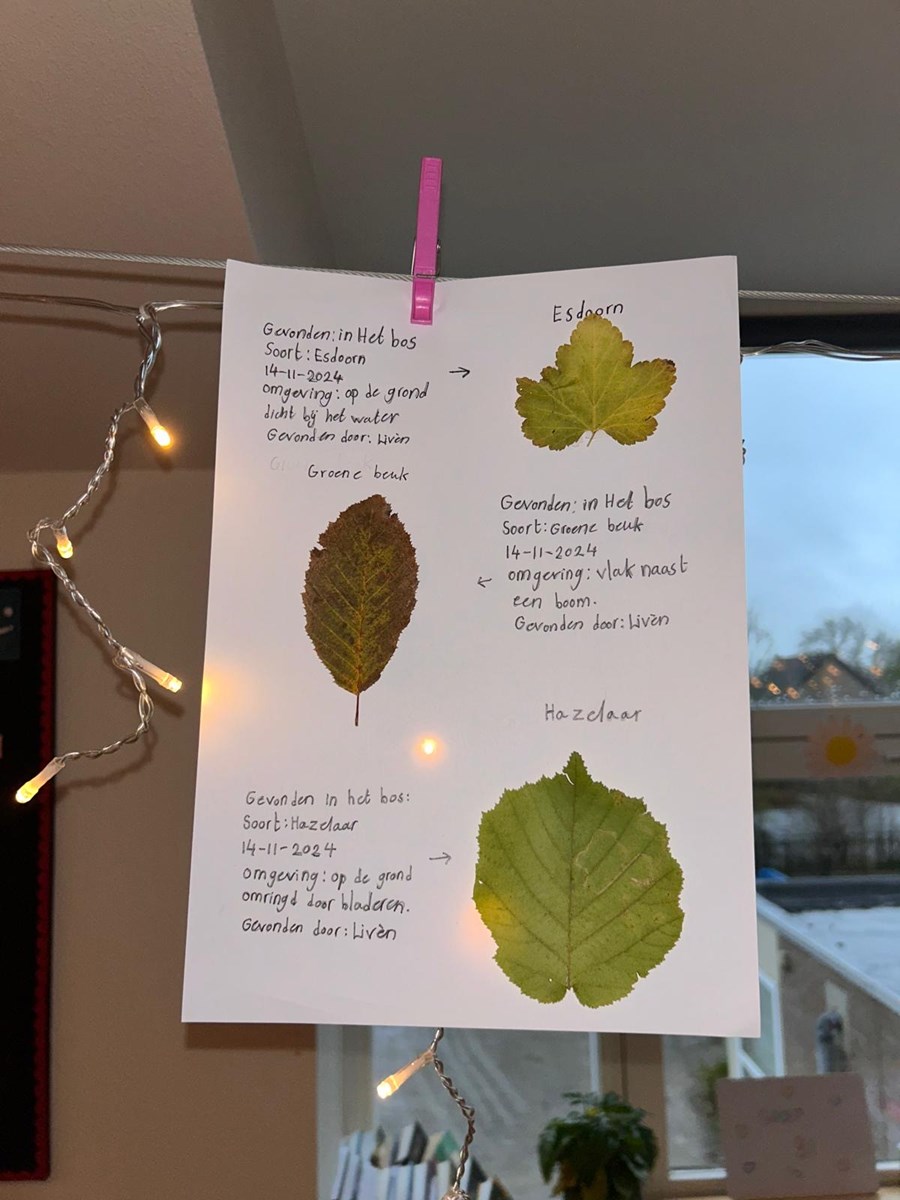 Esdoorn
Gevonden: in Het bos
Soort: Esdoorn
14-11-2024
omgeving: op de grond
dicht bij het water
Gevonden door: Livèn
Groene beuk
Gevonden: in Het bos
Soort: Groene beuk
14-11-2024
omgeving: vlak naast
een boom.
Gevonden door: Livèn
Hazelaar
Gevonden in het bos:
Soort: Hazelaar
14-11-2024
omgeving: op de grond
omringd door bladeren.
Gevonden door: Livèn